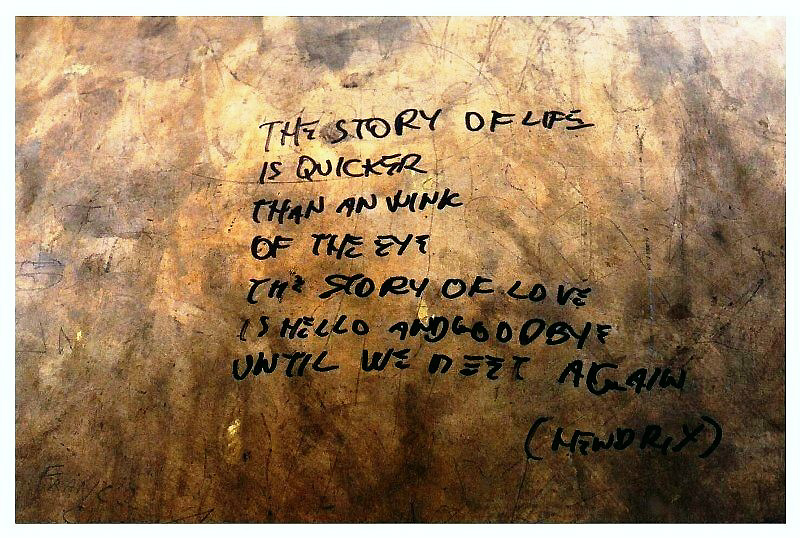 THE STORY OF LIFE
IS QUICKER
THAN AN WINK
OF THE EYE
THE STORY OF LOVE
IS HELLO AND GOODBYE
UNTIL WE MEET AGAIN
(HENDRIX)
FRANCIS